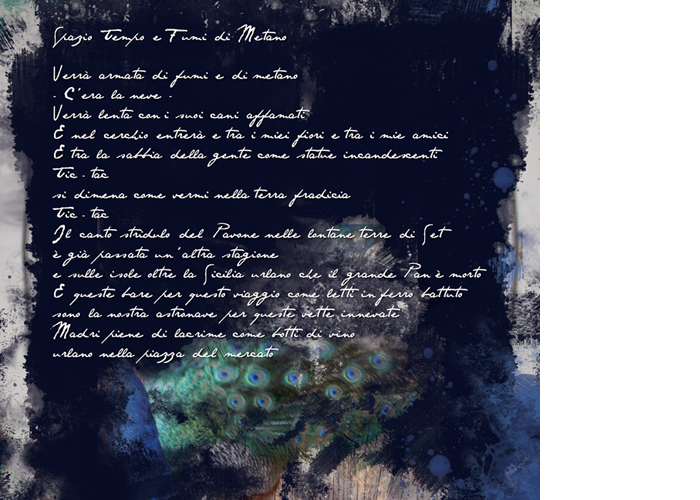 Spazio Tempo e Fumi di Metano
Verrà armata di fumi e di metano
- C'era la neve -
Verrà lenta con i suoi cani affamati
E nel cerchio entrerà e tra i miei fiori e tra i mie amici
E tra la sabbia della gente come statue incandescenti
Tic - tac
si dimena come vermi nella terra fradicia
Tic - tac
Il canto stridulo del Pavone nelle lontane terre di Set
è già passata un'altra stagione
e sulle isole oltre la Sicilia urlano che il grande Pan è morto
E queste bare per questo viaggio come letti in ferro battuto
sono la nostra astronave per queste vette innevate
Madri piene di lacrime come botti di vino
urlano nella piazza del mercato